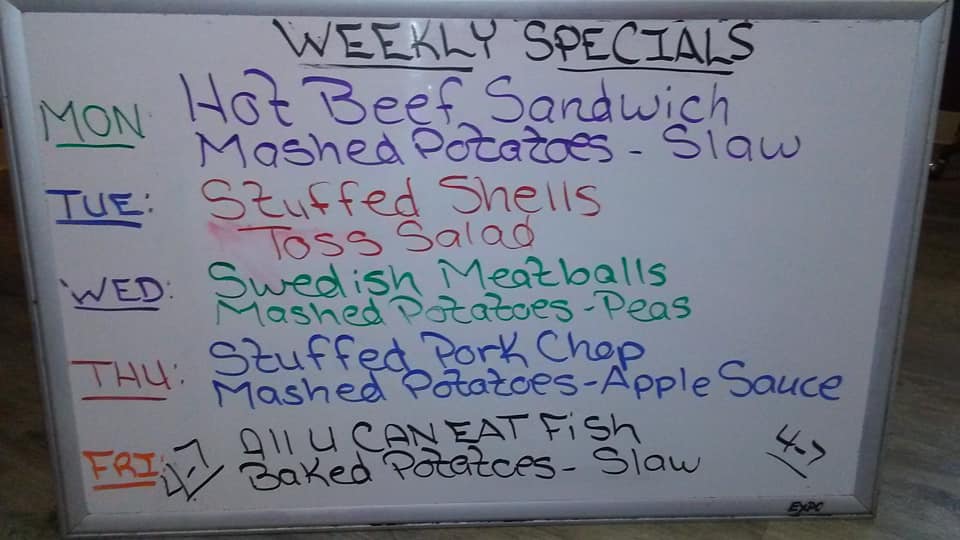 WEEKLY SPECIALS
MON: Hot Beef Sandwich
Mashed Potatoes - Slaw
TUE: Stuffed Shells
Toss Salad
WED: Swedish Meatballs
Mashed Potatoes - Peas
THU: Stuffed Pork Chop
Mashed Potatoes - Apple Sauce
FRI: All U CAN EAT Fish
Baked Potatoes - Slaw
4-7
EXPO